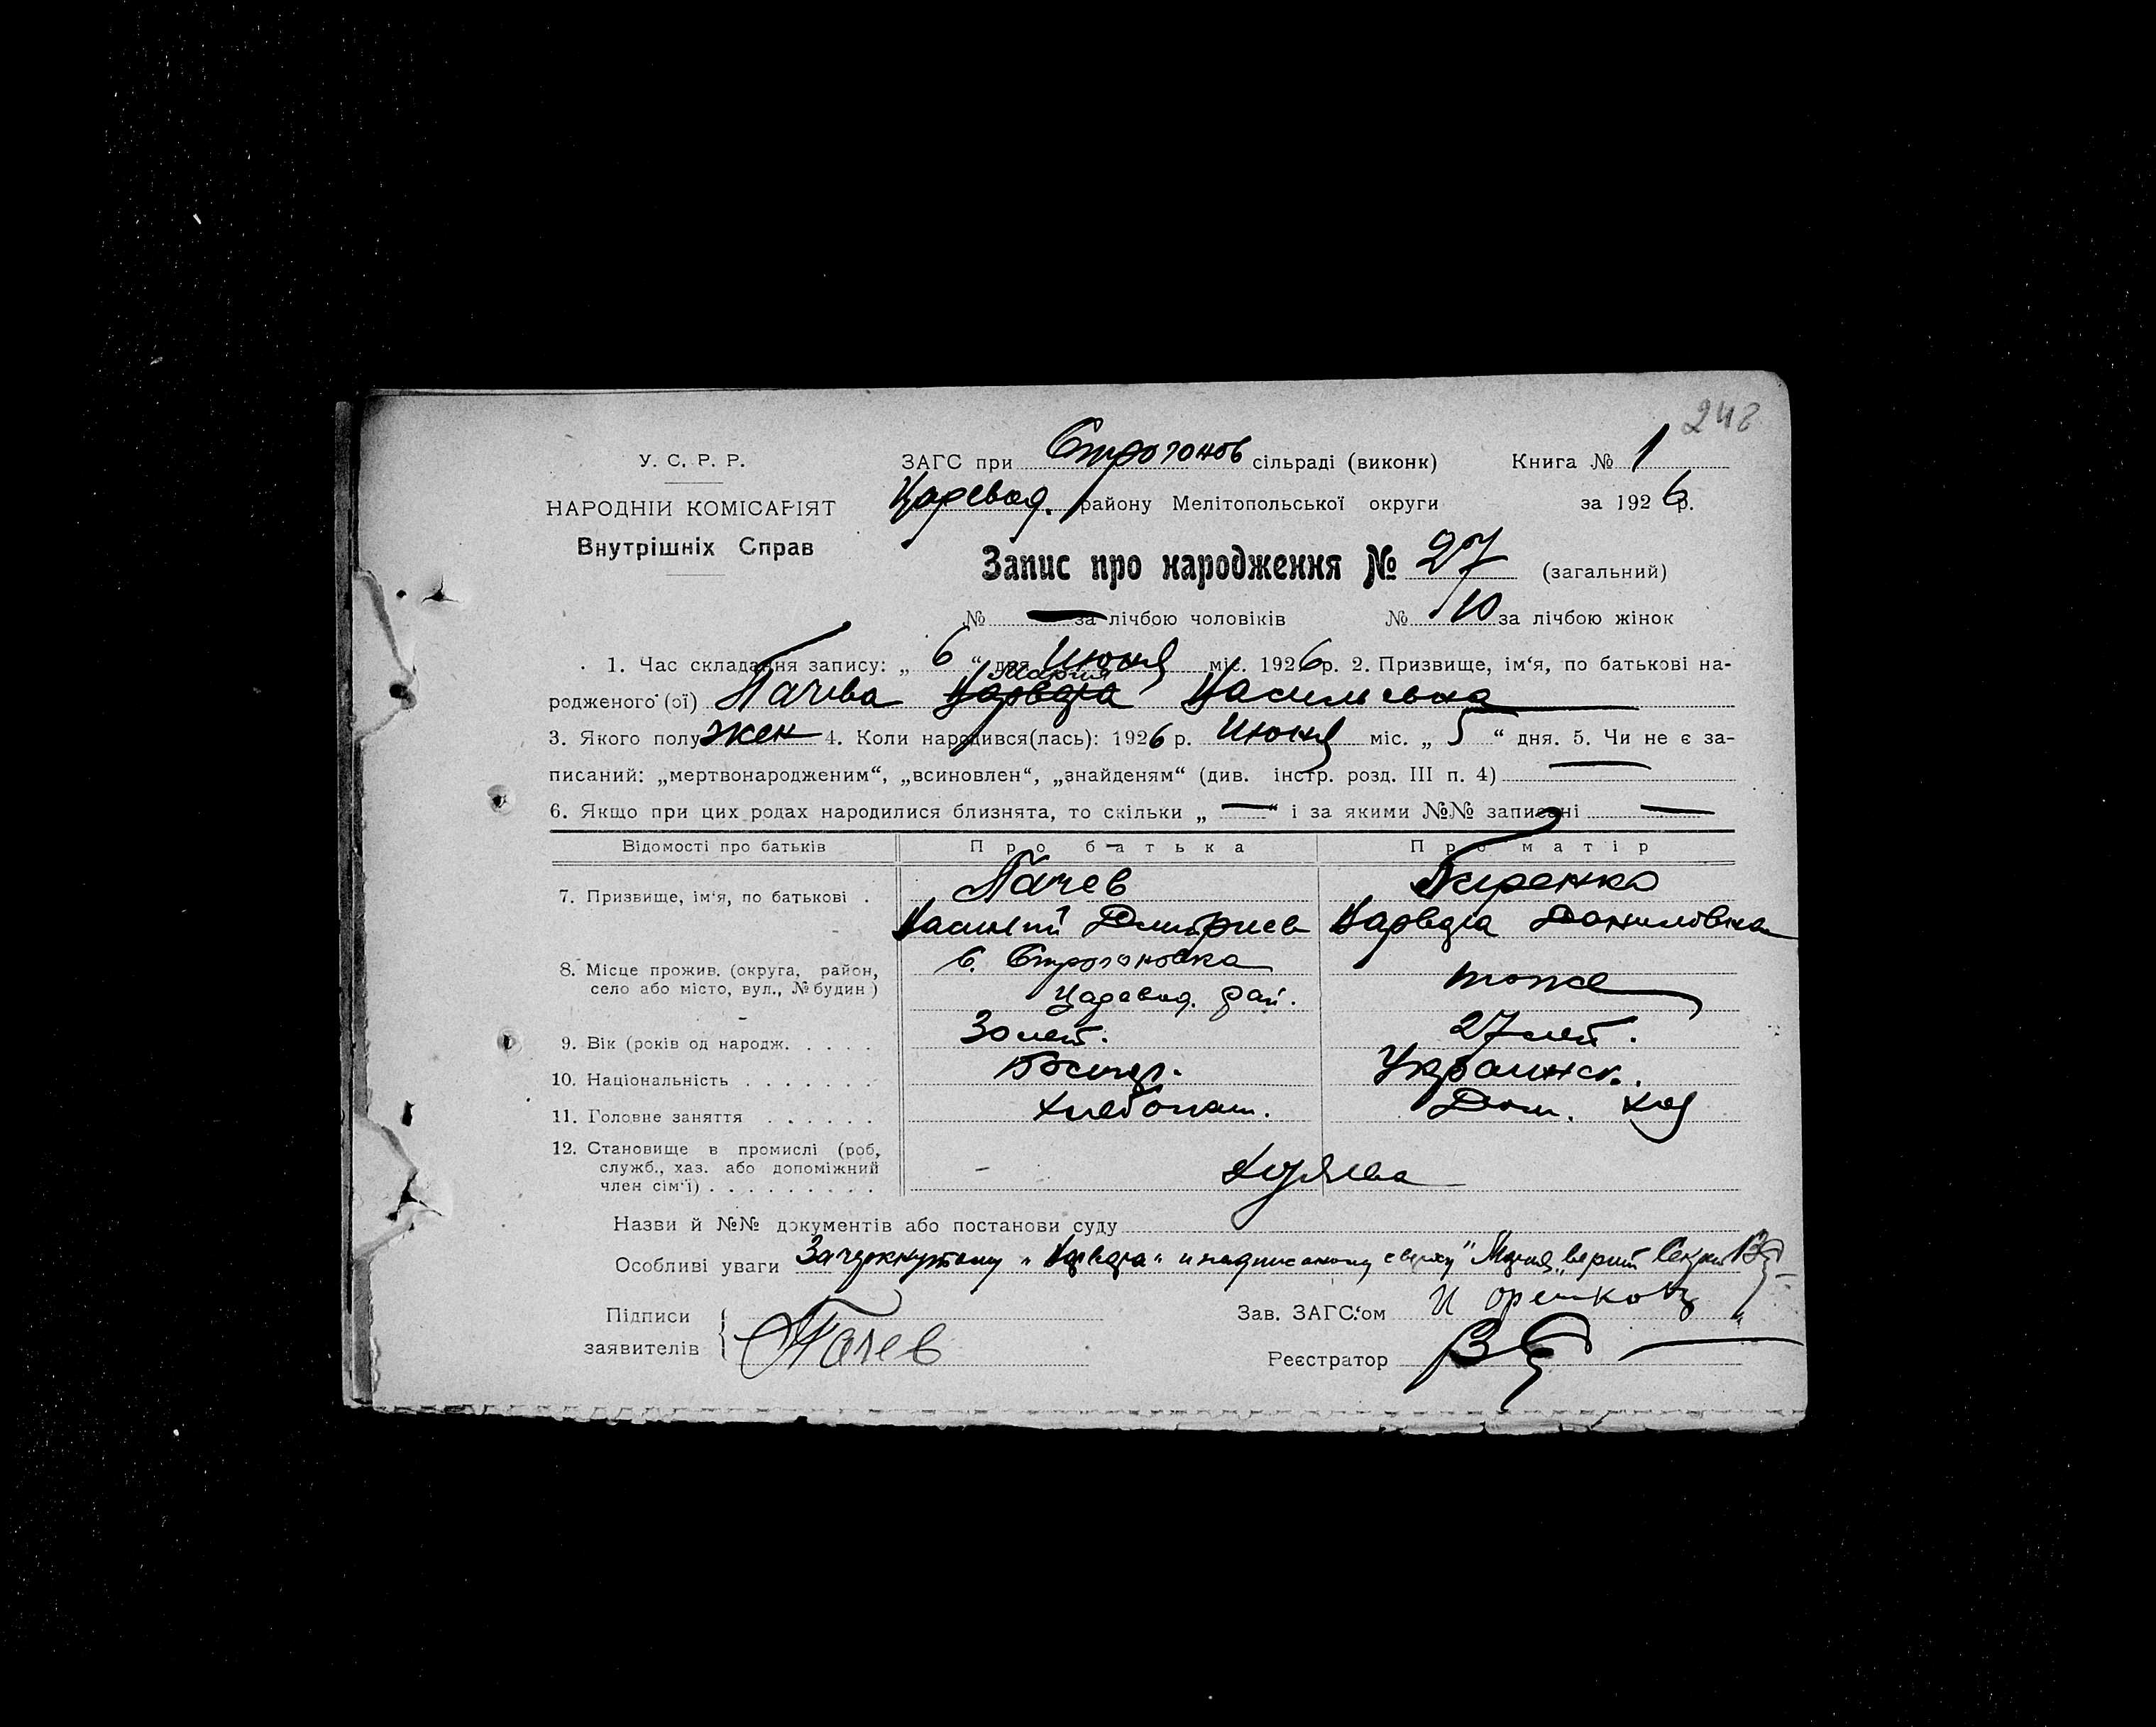 248
У. С. Р. Р.
НАРОДНІЙ КОМІСАРІЯТ
Внутрішніх Справ
ЗАГС при Строгонов сільраді (виконк) Книга № 1
Царевод. району Мелітопольської округи за 1926 р.
Запис про народження № 27 (загальний)
№ — за лічбою чоловіків № 10 за лічбою жінок
1. Час складання запису: „ 6 “ дня Июня міс. 1926 р. 2. Призвище, ім‘я, по батькові на-
Мария
родженого (ої) Пачева Варвара Васильевна
3. Якого полу жен 4. Коли народився(лась): 1926 р. Июня міс. „ 5 “ дня. 5. Чи не є за-
писаний: „мертвонародженим“, „всиновлен“, „знайденям“ (див. інстр. розд. III п. 4) —
6. Якщо при цих родах народилися близнята, то скільки „ — “ і за якими №№ записані —
Відомості про батьків Про батька Про матір
7. Призвище, ім‘я, по батькові . Пачев
Василий Дмитриев Варвара Даниловна
8. Місце прожив. (округа, район, село або місто, вул., № будин) с. Строгановка тоже
Царевод. рай.
9. Вік (років од народж. . . . . 30 лет. 27 лет.
10. Національність . . . . . . . Болгар. Украинск.
11. Головне заняття . . . . . . Хлебопаш. Дом. хоз
12. Становище в промислі (роб, служб., хаз. або допоміжний член сім‘ї) . . . . . . . . . - Хозяева
Назви й №№ документів або постанови суду
Особливі уваги Зачеркнутому „Варвара“ и надписаному сверху „Мария“ верит Секрет
Підписи заявителів Пачев
Зав. ЗАГС‘ом
Реєстратор